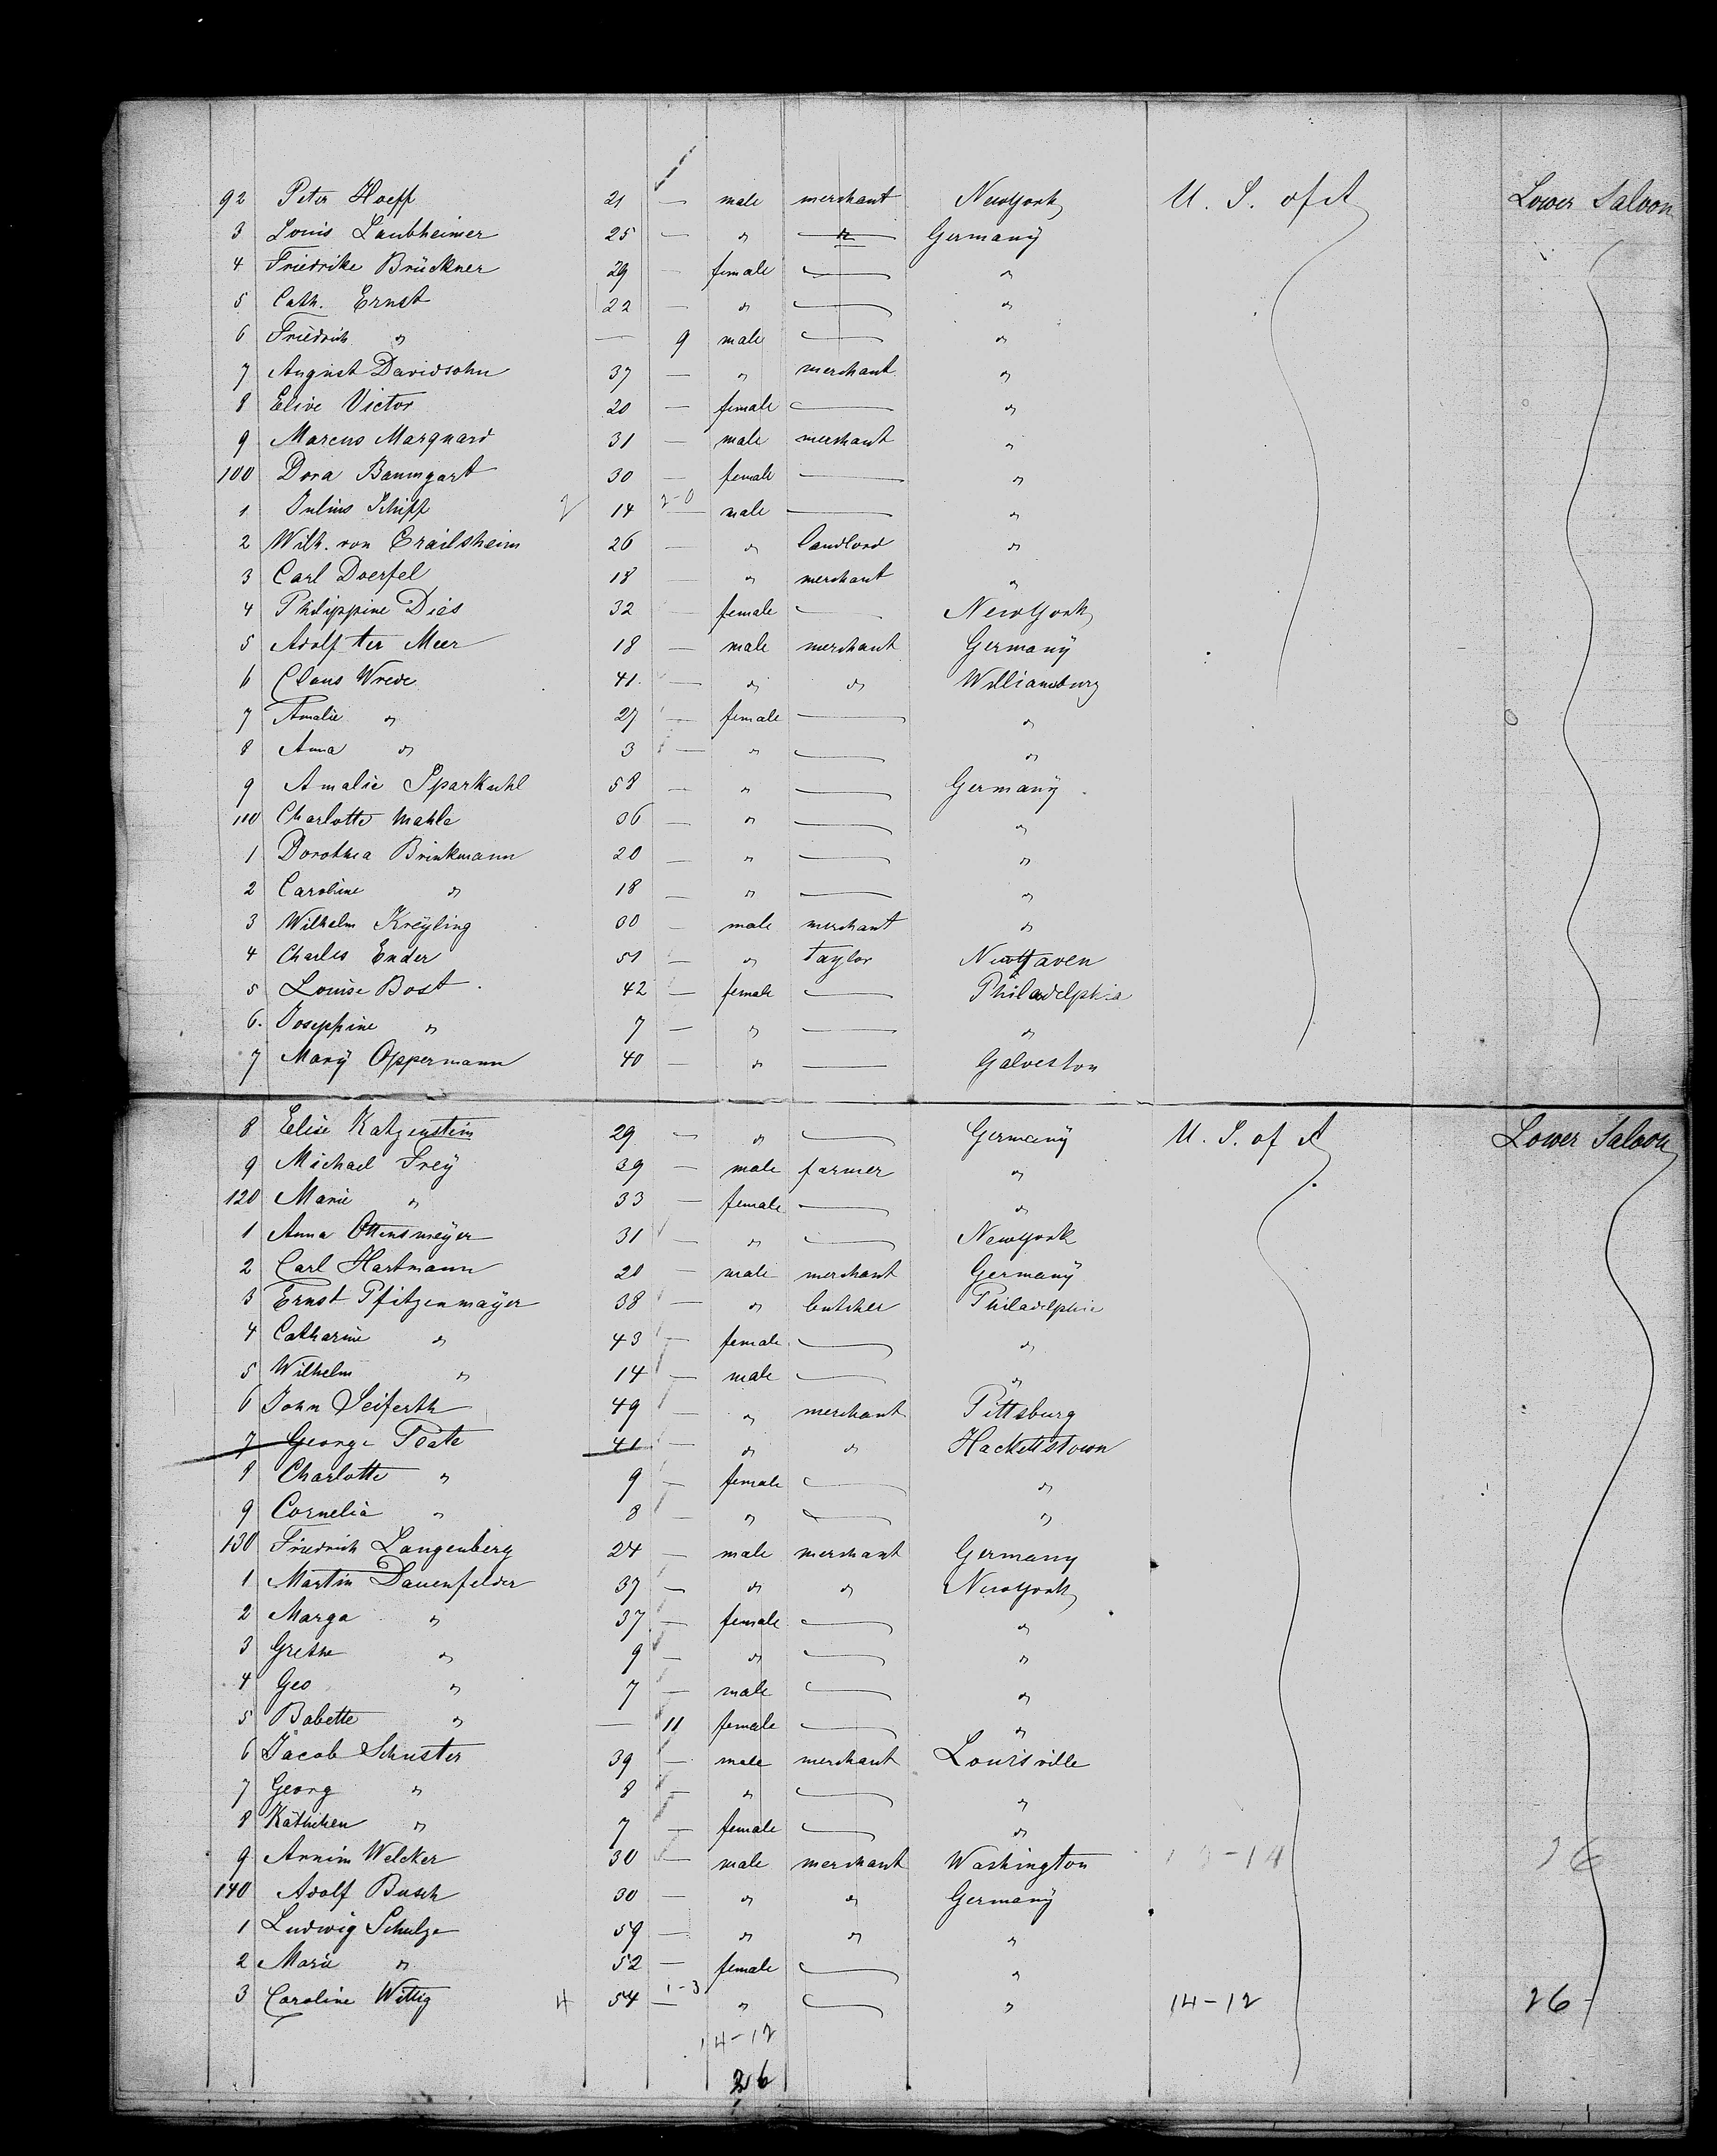 92 Peter Hoeff 21 — male merchant NewYork U. S. of A Lower Saloon
3 Louis Laubheimer 25 — " — Germany
4 Friedrike Brückner 29 — female — "
5 Cath. Ernst 22 — " — "
6 Friedrich " — 9 male — "
7 August Davidsohn 37 — " merchant "
8 Elive Victor 20 — female — "
9 Marcus Marquard 31 — male merchant "
100 Dora Baumgart 30 — female — "
1 Julius Schiff 2 14 2-0 — male — "
2 Wilh. von Crailsheim 26 — " landlord "
3 Carl Doerfel 18 — " merchant "
4 Philippine Dies 32 — female — NewYork
5 Adolf ter Meer 18 — male merchant Germany
6 Claus Wrede 41 — " " Williamsburg
7 Amalie " 27 — female — "
8 Anna " 3 — " — "
9 Amalie Sparkuhl 58 — " — Germany
110 Charlotte Mahle 36 — " — "
1 Dorothea Brinkmann 20 — " — "
2 Caroline " 18 — " — "
3 Wilhelm Kreyling 30 — male merchant "
4 Charles Ender 51 — " taylor NewHaven
5 Louise Bost 42 — female — Philadelphia
6. Josephine " 7 — " — "
7 Mary Oppermann 40 — " — Galveston
8 Elise Katzenstein 29 — " — Germany U. S. of A Lower Saloon
9 Michael Frey 39 — male farmer "
120 Marie " 33 — female — "
1 Anna Ottensmeyer 31 — " — NewYork
2 Carl Hartmann 21 — male merchant Germany
3 Ernst Pfitzenmayer 38 — " butcher Philadelphia
4 Catharine " 43 — female — "
5 Wilhelm " 14 — male — "
6 John Seiferth 49 — " merchant Pittsburg
7 George Poate 41 — " " Hackettstown
8 Charlotte " 9 — female — "
9 Cornelia " 8 — " — "
130 Friedrich Langenberg 24 — male merchant Germany
1 Martin Dauenfelder 37 — " " NewYork
2 Marga " 37 — female — "
3 Grethe " 9 — " — "
4 Geo " 7 — male — "
5 Babette " — 11 female — "
6 Jacob Schuster 39 — male merchant Louisville
7 Georg " 8 — " — "
8 Käthchen " 7 — female — "
9 Armin Welcker 30 — male merchant Washington
140 Adolf Busch 30 — " " Germany
1 Ludwig Schulze 59 — " " "
2 Marie " 52 — female — "
3 Caroline Wittig 4 54 1-3 — " — " 14-12 26
14-12
26